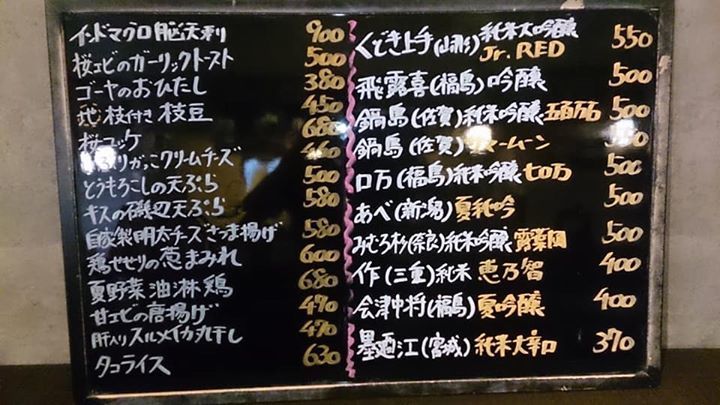 インドマグロ脳天刺 900
桜エビのガーリックトースト 500
ゴーヤのおひたし 380
地 枝付き 枝豆 450
桜ユッケ 680
いぶりがっこクリームチーズ 460
とうもろこしの天ぷら 500
キスの磯辺天ぷら 580
自家製明太チーズさつま揚げ 580
鶏せせりの葱まみれ 600
夏野菜 油淋鶏 680
甘エビの唐揚げ 470
肝入りスルメイカ丸干し 470
タコライス 630
くどき上手(山形)純米大吟醸 Jr. RED 550
飛露喜(福島)吟醸 500
鍋島(佐賀)純米吟醸 五百万石 500
鍋島(佐賀)サマームーン
ロ万(福島)純米吟醸 七ロ万 500
あべ(新潟)夏純吟 500
みむろ杉(奈良)純米吟醸 露葉風 500
作(三重)純米 恵乃智 400
会津中将(福島)夏吟醸 400
墨廼江(宮城)純米大辛口 370